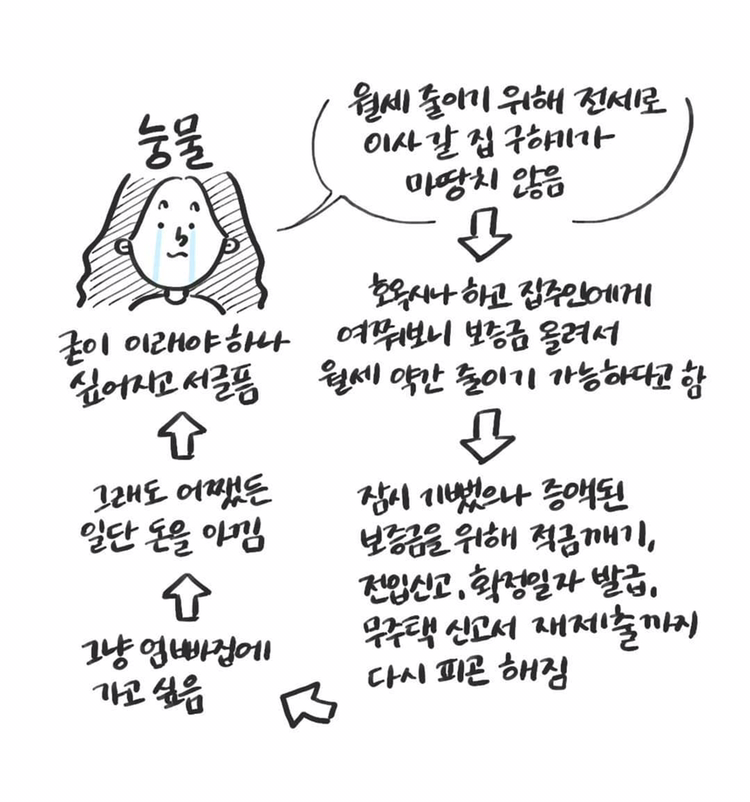 눙물
월세 줄이기 위해 전세로
이사 갈 집 구하기가
마땅치 않음
혹옥시나 하고 집주인에게
여쭤보니 보증금 올려서
월세 약간 줄이기 가능하다고 함
잠시 기뻤으나 증액된
보증금을 위해 적금깨기,
전입신고, 확정일자 발급,
무주택 신고서 재제출까지
다시 피곤 해짐
그냥 엄빠집에
가고 싶음
그래도 어쨌든
일단 돈을 아낌
굳이 이래야 하나
싶어지고 서글픔